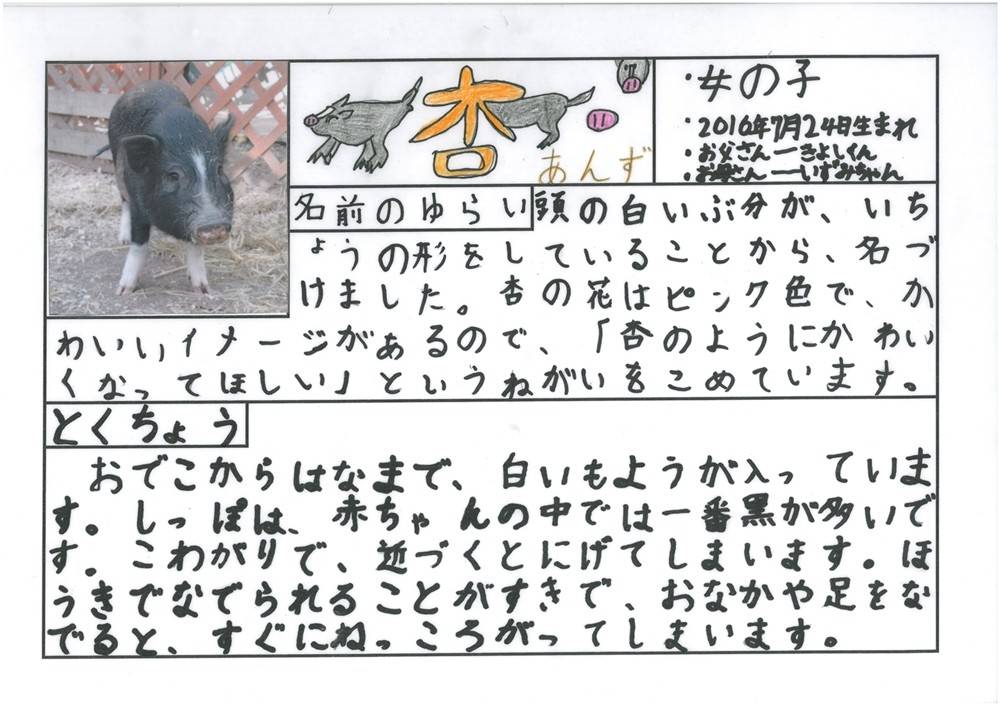 杏
あんず
・女の子
・2016年7月24日生まれ
・お父さん―きよしくん
・お母さん―いずみちゃん
名前のゆらい
頭の白いぶ分が、いち
ょうの形をしていることから、名づ
けました。杏の花はピンク色で、か
わいいイメージがあるので、「杏のようにかわい
くなってほしい」というねがいをこめています。
とくちょう
おでこからはなまで、白いもようが入っていま
す。しっぽは、赤ちゃんの中では一番黒が多いで
す。こわがりで、近づくとにげてしまいます。ほ
うきでなでられることがすきで、おなかや足をな
でると、すぐにねっころがってしまいます。